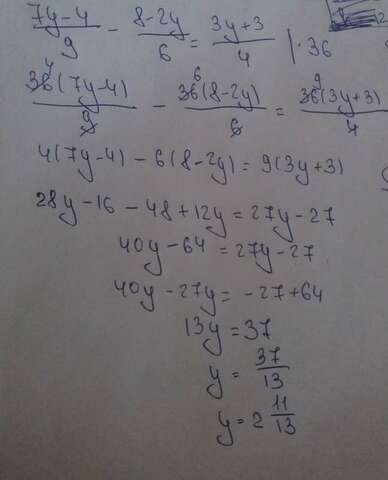 (7y-4)/9 - (8-2y)/6 = (3y+3)/4 | ·36
4 6 9
36(7y-4)/9 - 36(8-2y)/6 = 36(3y+3)/4
4(7y-4) - 6(8-2y) = 9(3y+3)
28y - 16 - 48 + 12y = 27y - 27
40y - 64 = 27y - 27
40y - 27y = -27 + 64
13y = 37
y = 37/13
y = 2 11/13